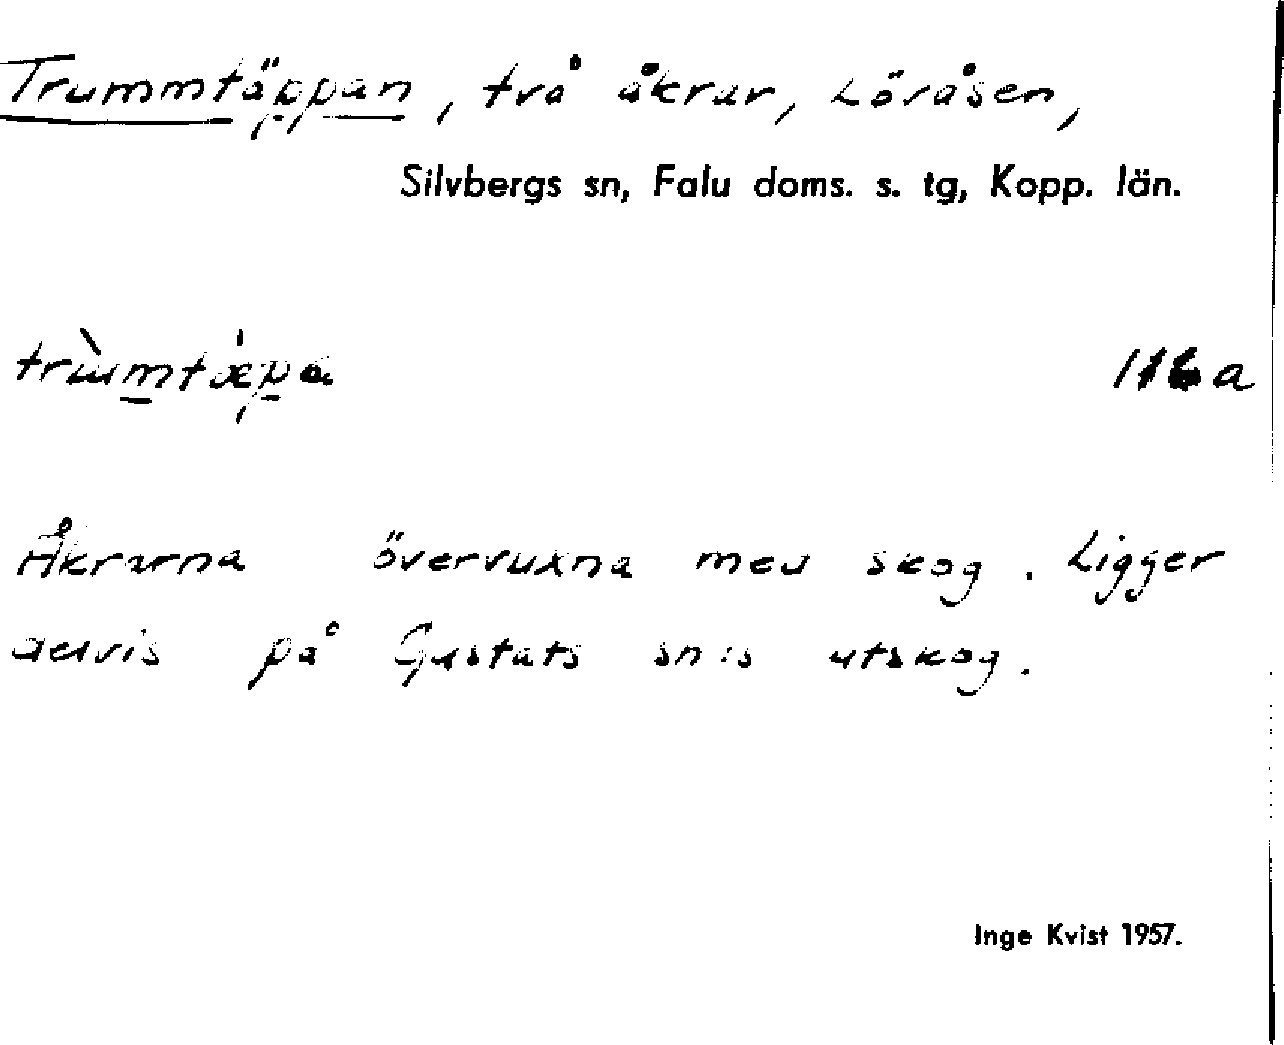 Trummtäppan, två åkrar, Löråsen,
Silvbergs sn, Falu doms. s. tg, Kopp. län.
a
Åkrarna övervuxna med skog. Ligger
delvis på Gustafs sn:s utskog.
Inge Kvist 1957.